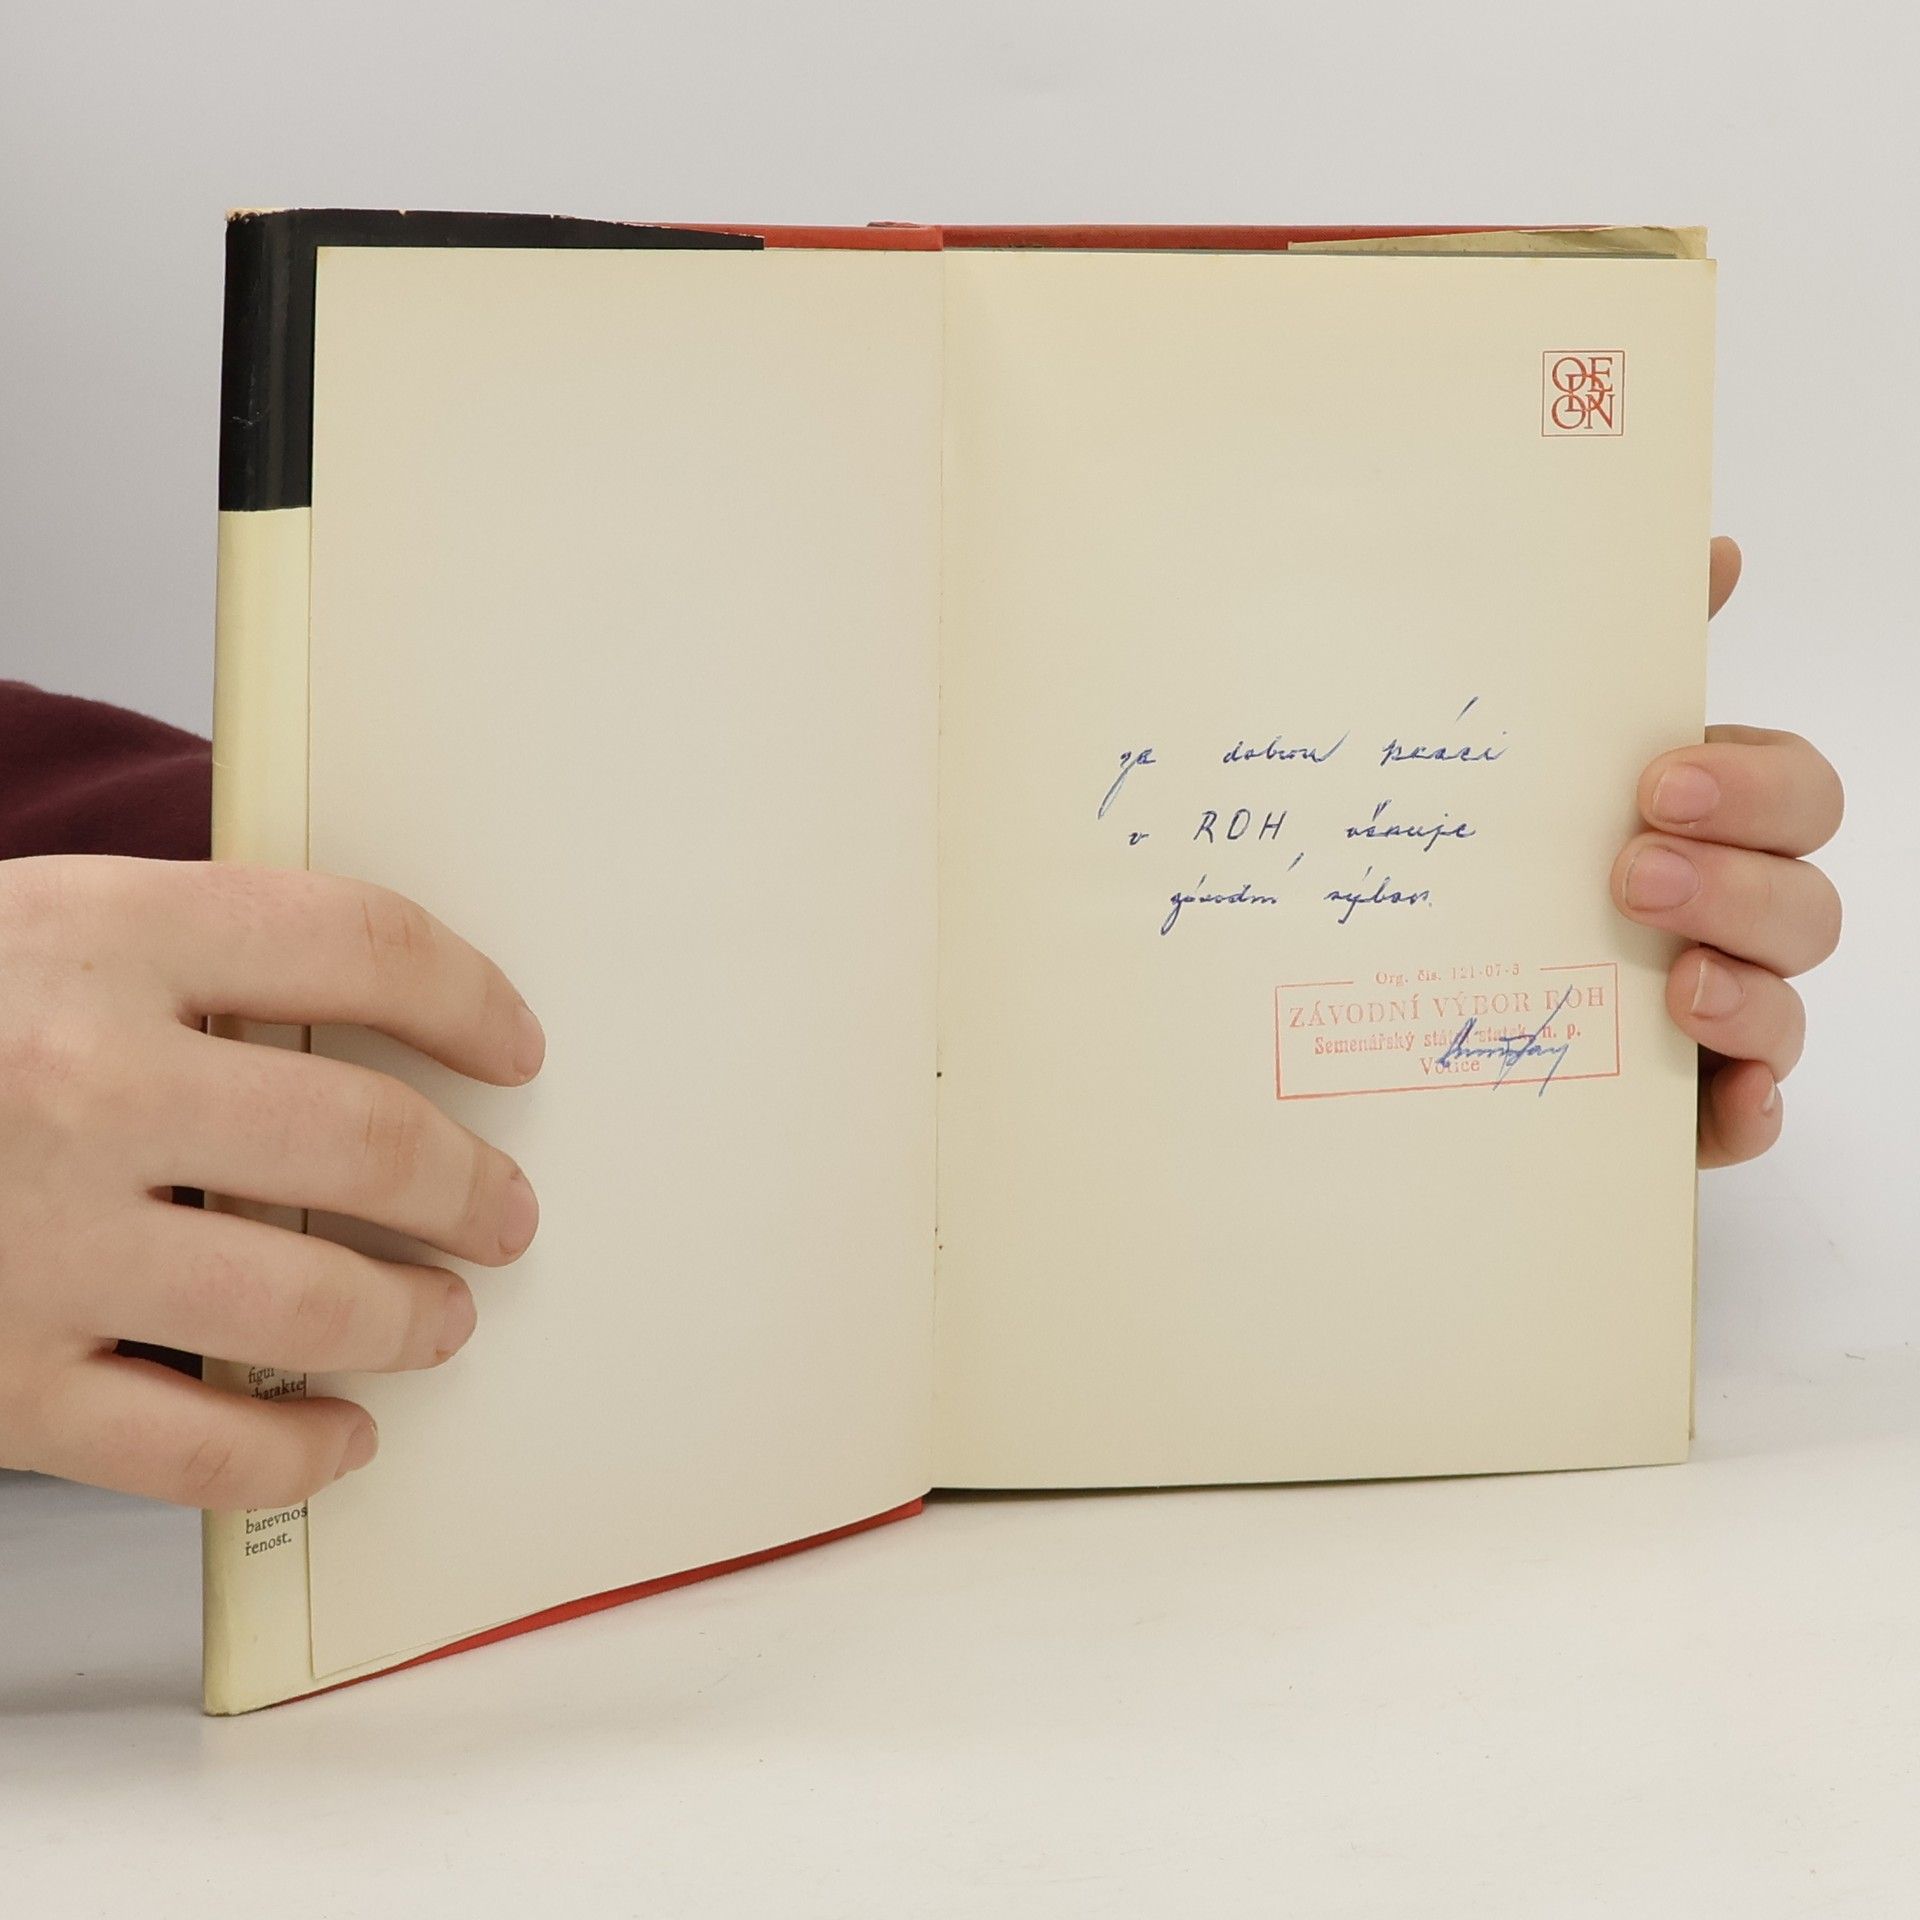 OE
D
ON
za dobrou práci
v ROH věnuje
závodní výbor.
Org. čís. 121-07-3
ZÁVODNÍ VÝBOR ROH
Semenářský státní statek, n. p.
Votice
figur
charakte
barevnos
řenost.